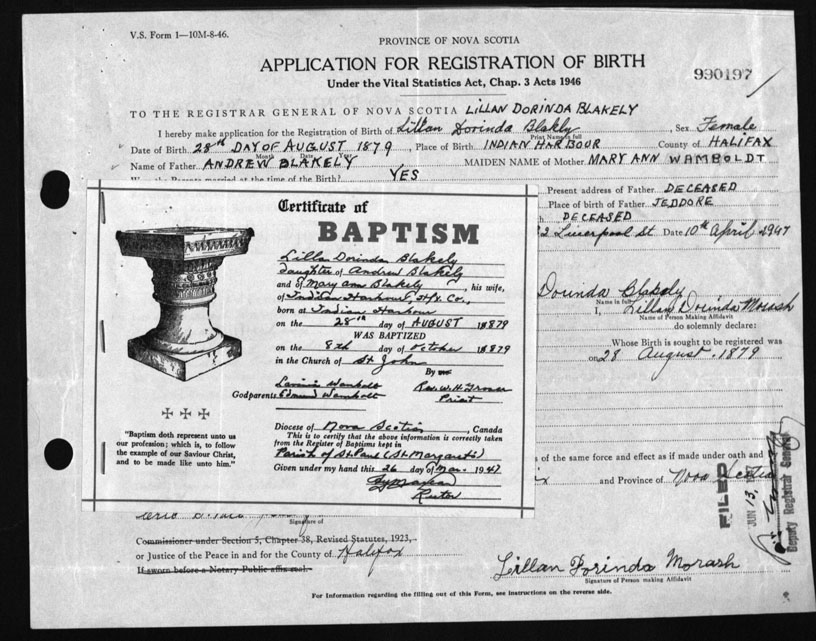 V.S. Form 1—10M-8-46.
PROVINCE OF NOVA SCOTIA
APPLICATION FOR REGISTRATION OF BIRTH
Under the Vital Statistics Act, Chap. 3 Acts 1946
990197
TO THE REGISTRAR GENERAL OF NOVA SCOTIA LILLAN DORINDA BLAKELY
I hereby make application for the Registration of Birth of Lillan Dorinda Blakly, Sex Female
Print Name in full
Date of Birth 28th DAY OF AUGUST 1879, Place of Birth INDIAN HARBOUR County of HALIFAX
Month Date Year
Name of Father ANDREW BLAKELY MAIDEN NAME of Mother MARY ANN WAMBOLDT
Were the Parents married at the time of the Birth? YES
Present address of Father DECEASED
Place of birth of Father JEDDORE
DECEASED
Liverpool St Date 10th April 1947
Dorinda Blakely
Name in full
I, Lillan Dorinda Morash
Name of Person Making Affidavit
do solemnly declare:
Whose Birth is sought to be registered was
on 28 August. 1879
of the same force and effect as if made under oath and
and Province of Nova Scotia
FILED
JUN 13, 
Deputy Registrar General
Certificate of
BAPTISM
Lillan Dorinda Blakely
daughter of Andrew Blakely
and of Mary Ann Blakely, his wife,
of Indian Harbour, Hfx. Co.,
born at Indian Harbour
on the 28th day of AUGUST 1879
WAS BAPTIZED
on the 8th day of October 1879
in the Church of St John
By me
Rev. W. H. Groser
Priest
Lavinia Wambolt
Godparents Edmund Wambolt
"Baptism doth represent unto us
our profession; which is, to follow
the example of our Saviour Christ,
and to be made like unto him."
Diocese of Nova Scotia, Canada
This is to certify that the above information is correctly taken
from the Register of Baptisms kept in
Parish of St. Paul (St. Margarets)
Given under my hand this 26 day of Mar. 1947
Rector
Signature of
Commissioner under Section 5, Chapter 38, Revised Statutes, 1923,
or Justice of the Peace in and for the County of Halifax
If sworn before a Notary Public affix seal.
Lillan Dorinda Morash
Signature of Person making Affidavit
For Information regarding the filling out of this Form, see instructions on the reverse side.